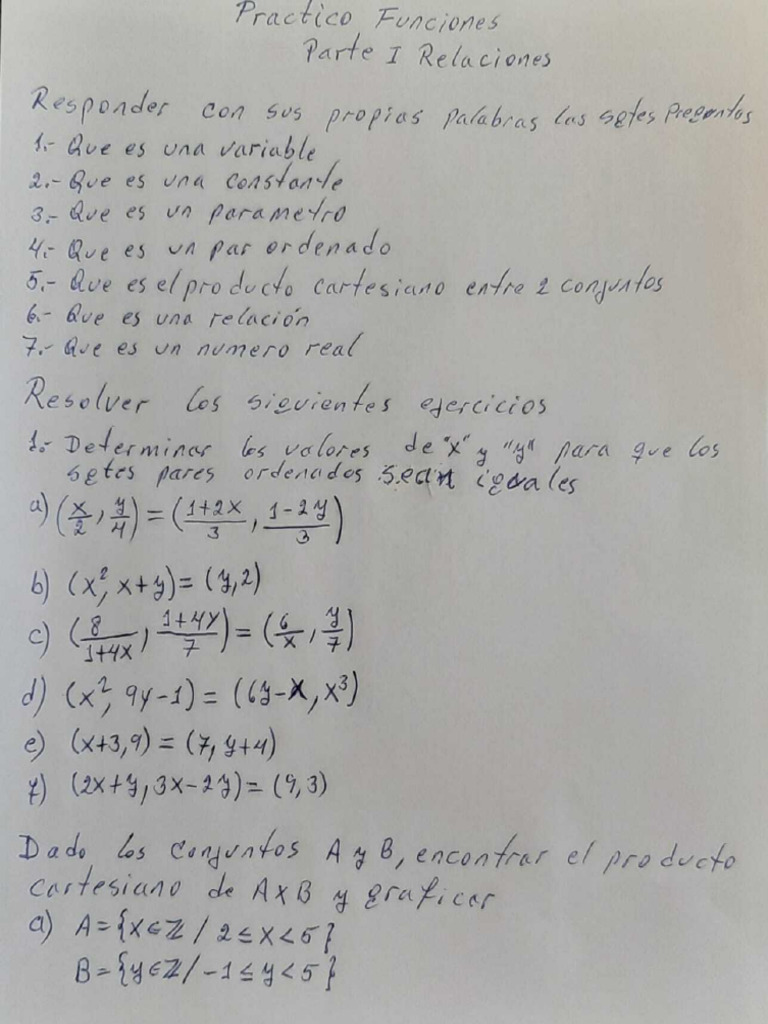 Practico Funciones
Parte I Relaciones
Responder con sus propias palabras las sgtes Preguntas
1.- Que es una variable
2.- Que es una constante
3.- Que es un parametro
4.- Que es un par ordenado
5.- Que es el producto cartesiano entre 2 conjuntos
6.- Que es una relación
7.- Que es un numero real
Resolver los siguientes ejercicios
1.- Determinar los valores de "x" y "y" para que los
sgtes pares ordenados sean iguales
a) (x/2, y/4) = (1+2x/3, 1-2y/3)
b) (x², x+y) = (y, 2)
c) (8/1+4x, 1+4y/7) = (6/x, y/7)
d) (x², 9y-1) = (6y-x, x³)
e) (x+3, 9) = (7, y+4)
f) (2x+y, 3x-2y) = (9, 3)
Dado los conjuntos A y B, encontrar el producto
cartesiano de A x B y graficar
a) A = {x∈ℤ / 2 ≤ x < 5}
B = {y∈ℤ / -1 ≤ y < 5}